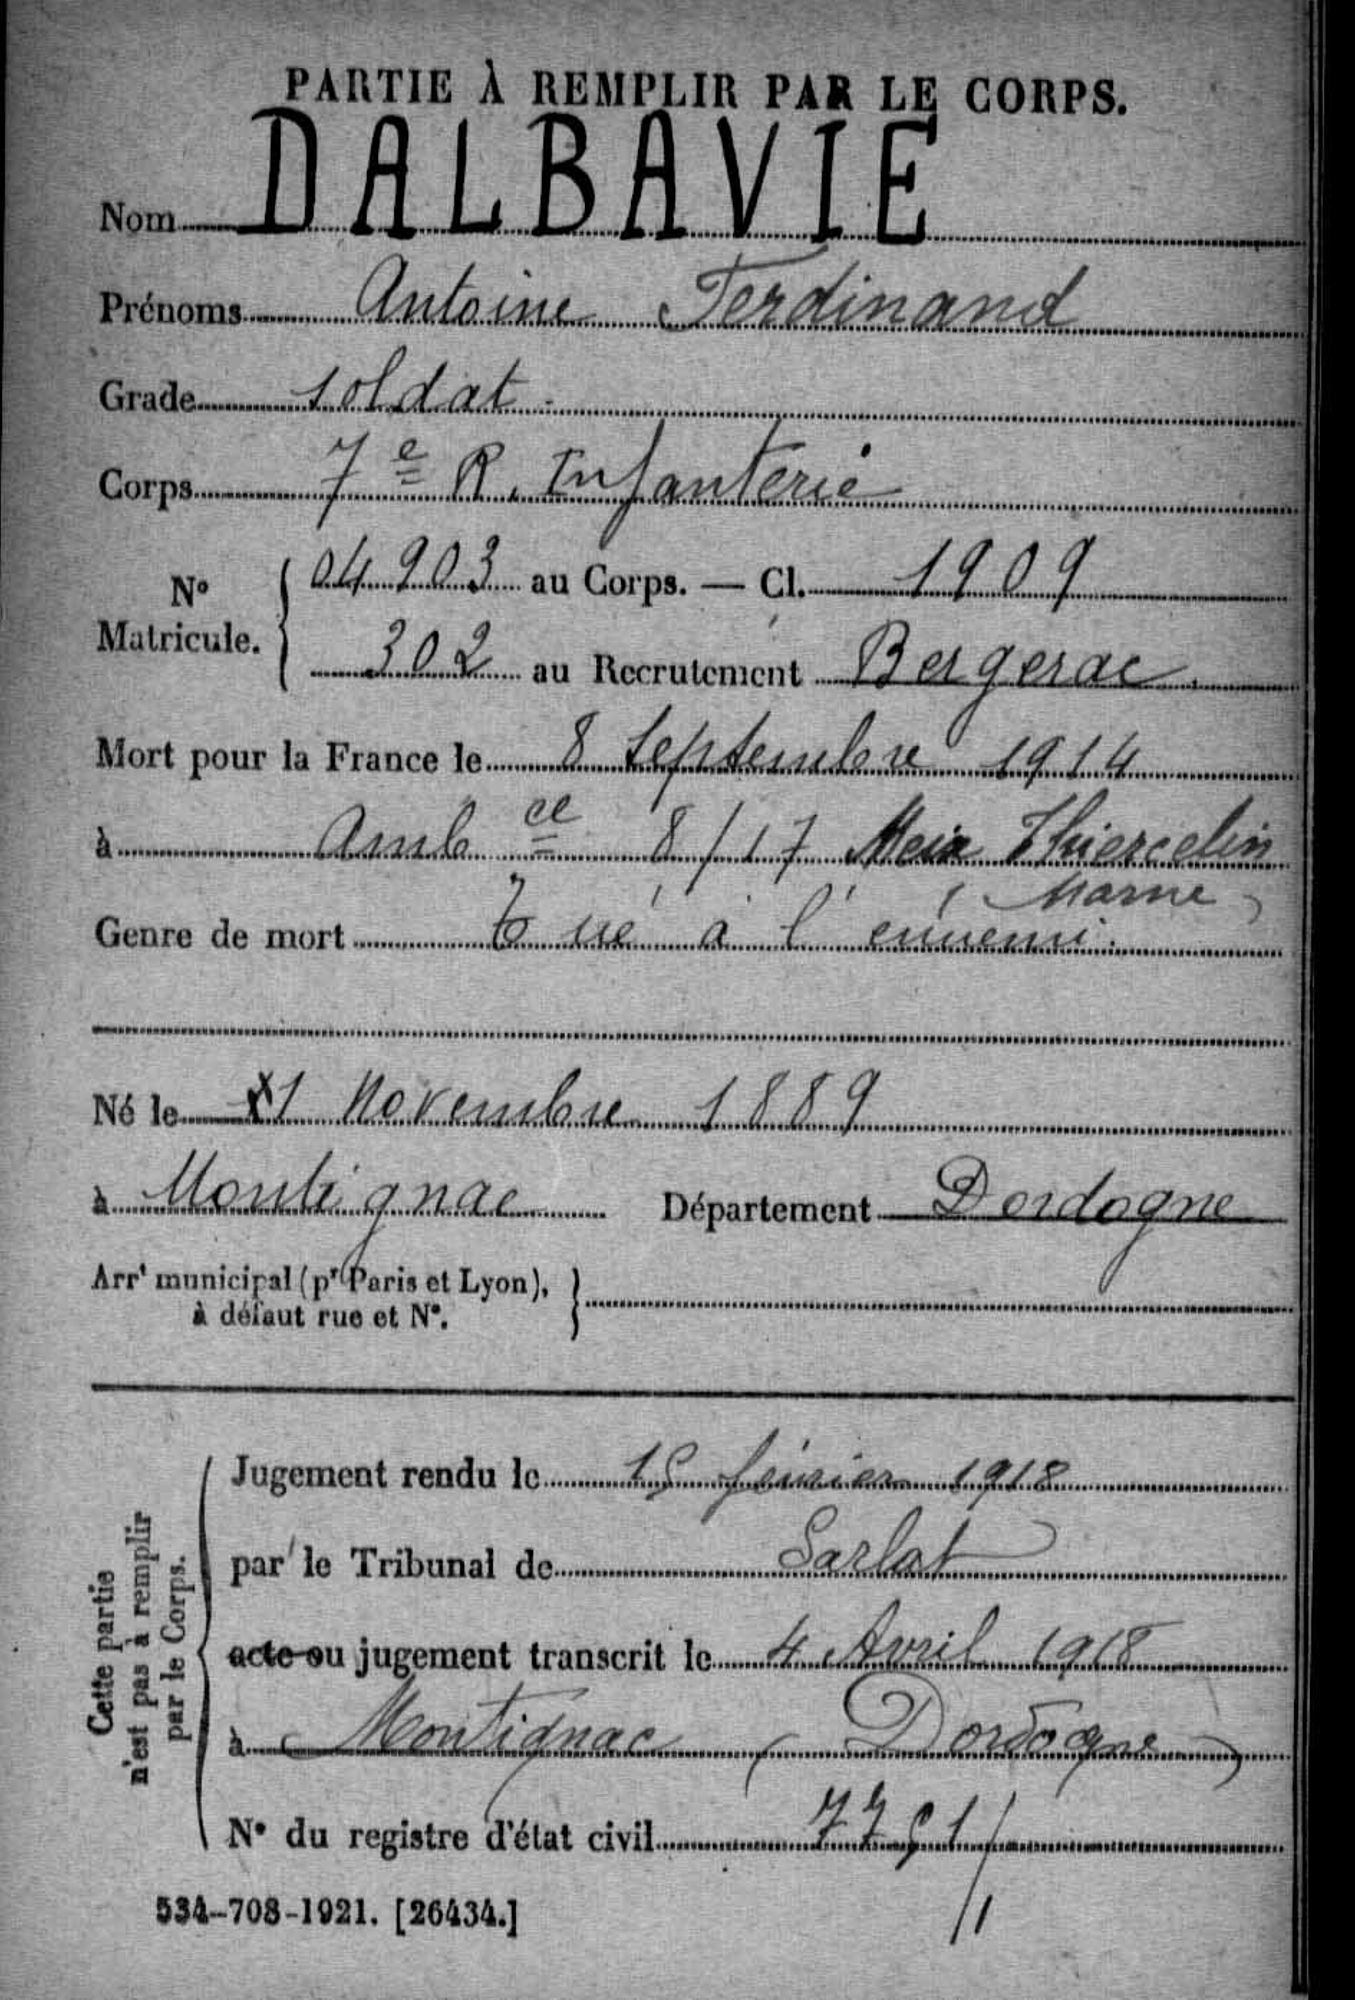 PARTIE À REMPLIR PAR LE CORPS.
Nom DALBAVIE
Prénoms Antoine Ferdinand
Grade soldat.
Corps 7e R. Infanterie
No Matricule. { 04903 au Corps. — Cl. 1909
302 au Recrutement Bergerac.
Mort pour la France le 8 Septembre 1914
à Amb ce 8/17 Meix Thiercelin
( Marne )
Genre de mort Tué à l'ennemi.
Né le 1 Novembre 1889
à Montignac Département Dordogne
Arrt municipal (pr Paris et Lyon),
à défaut rue et No. }
Cette partie
n'est pas à remplir
par le Corps.
Jugement rendu le 15 février 1918
par le Tribunal de Sarlat
acte ou jugement transcrit le 4 Avril 1918
à Montignac (Dordogne)
No du registre d'état civil
534-708-1921. [26434.]